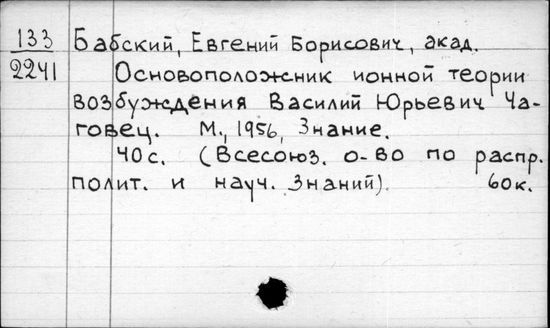 133 Бабский, Евгений Борисович, акад.
2241 Основоположник ионной теории
возбуждения Василий Юрьевич Ча-
говец. М., 1956, Знание.
40с. (Всесоюз. о-во по распр.
полит. и науч. Знаний). 60к.